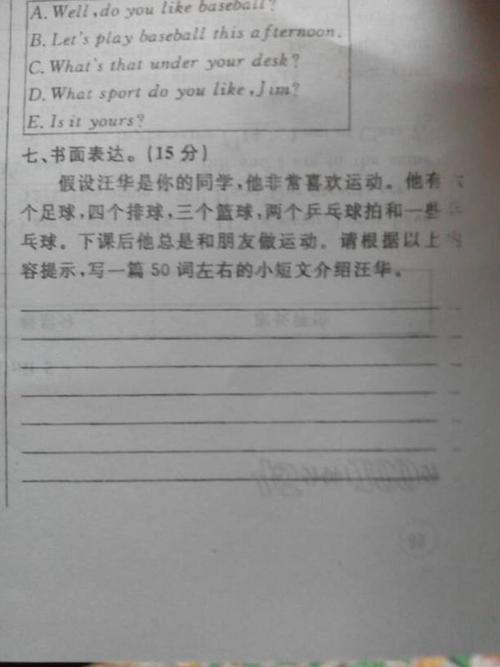 A. Well, do you like baseball?
B. Let's play baseball this afternoon.
C. What's that under your desk?
D. What sport do you like, Jim?
E. Is it yours?
七、书面表达。(15分)
假设汪华是你的同学,他非常喜欢运动。他有六
个足球,四个排球,三个篮球,两个乒乓球拍和一些乒
乓球。下课后他总是和朋友做运动。请根据以上内
容提示,写一篇 50 词左右的小短文介绍汪华。